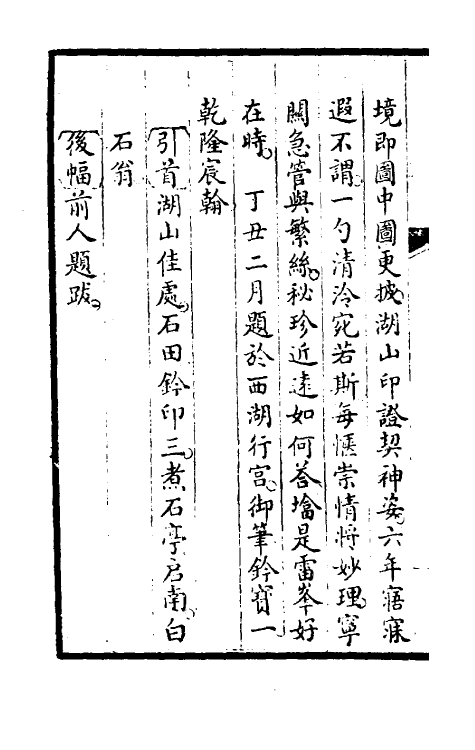 境即圖中圖更披湖山印證契神姿六年寤寐
遐不謂一勺清泠宛若斯每愜崇情將妙理寧
關急管與繁絲秘珍近遠如何答墖是雷峯好
在時　丁丑二月題於西湖行宮御筆鈐寶一
乾隆宸翰
引首湖山佳處石田鈐印三煮石亭啟南白
石翁
後幅前人題跋